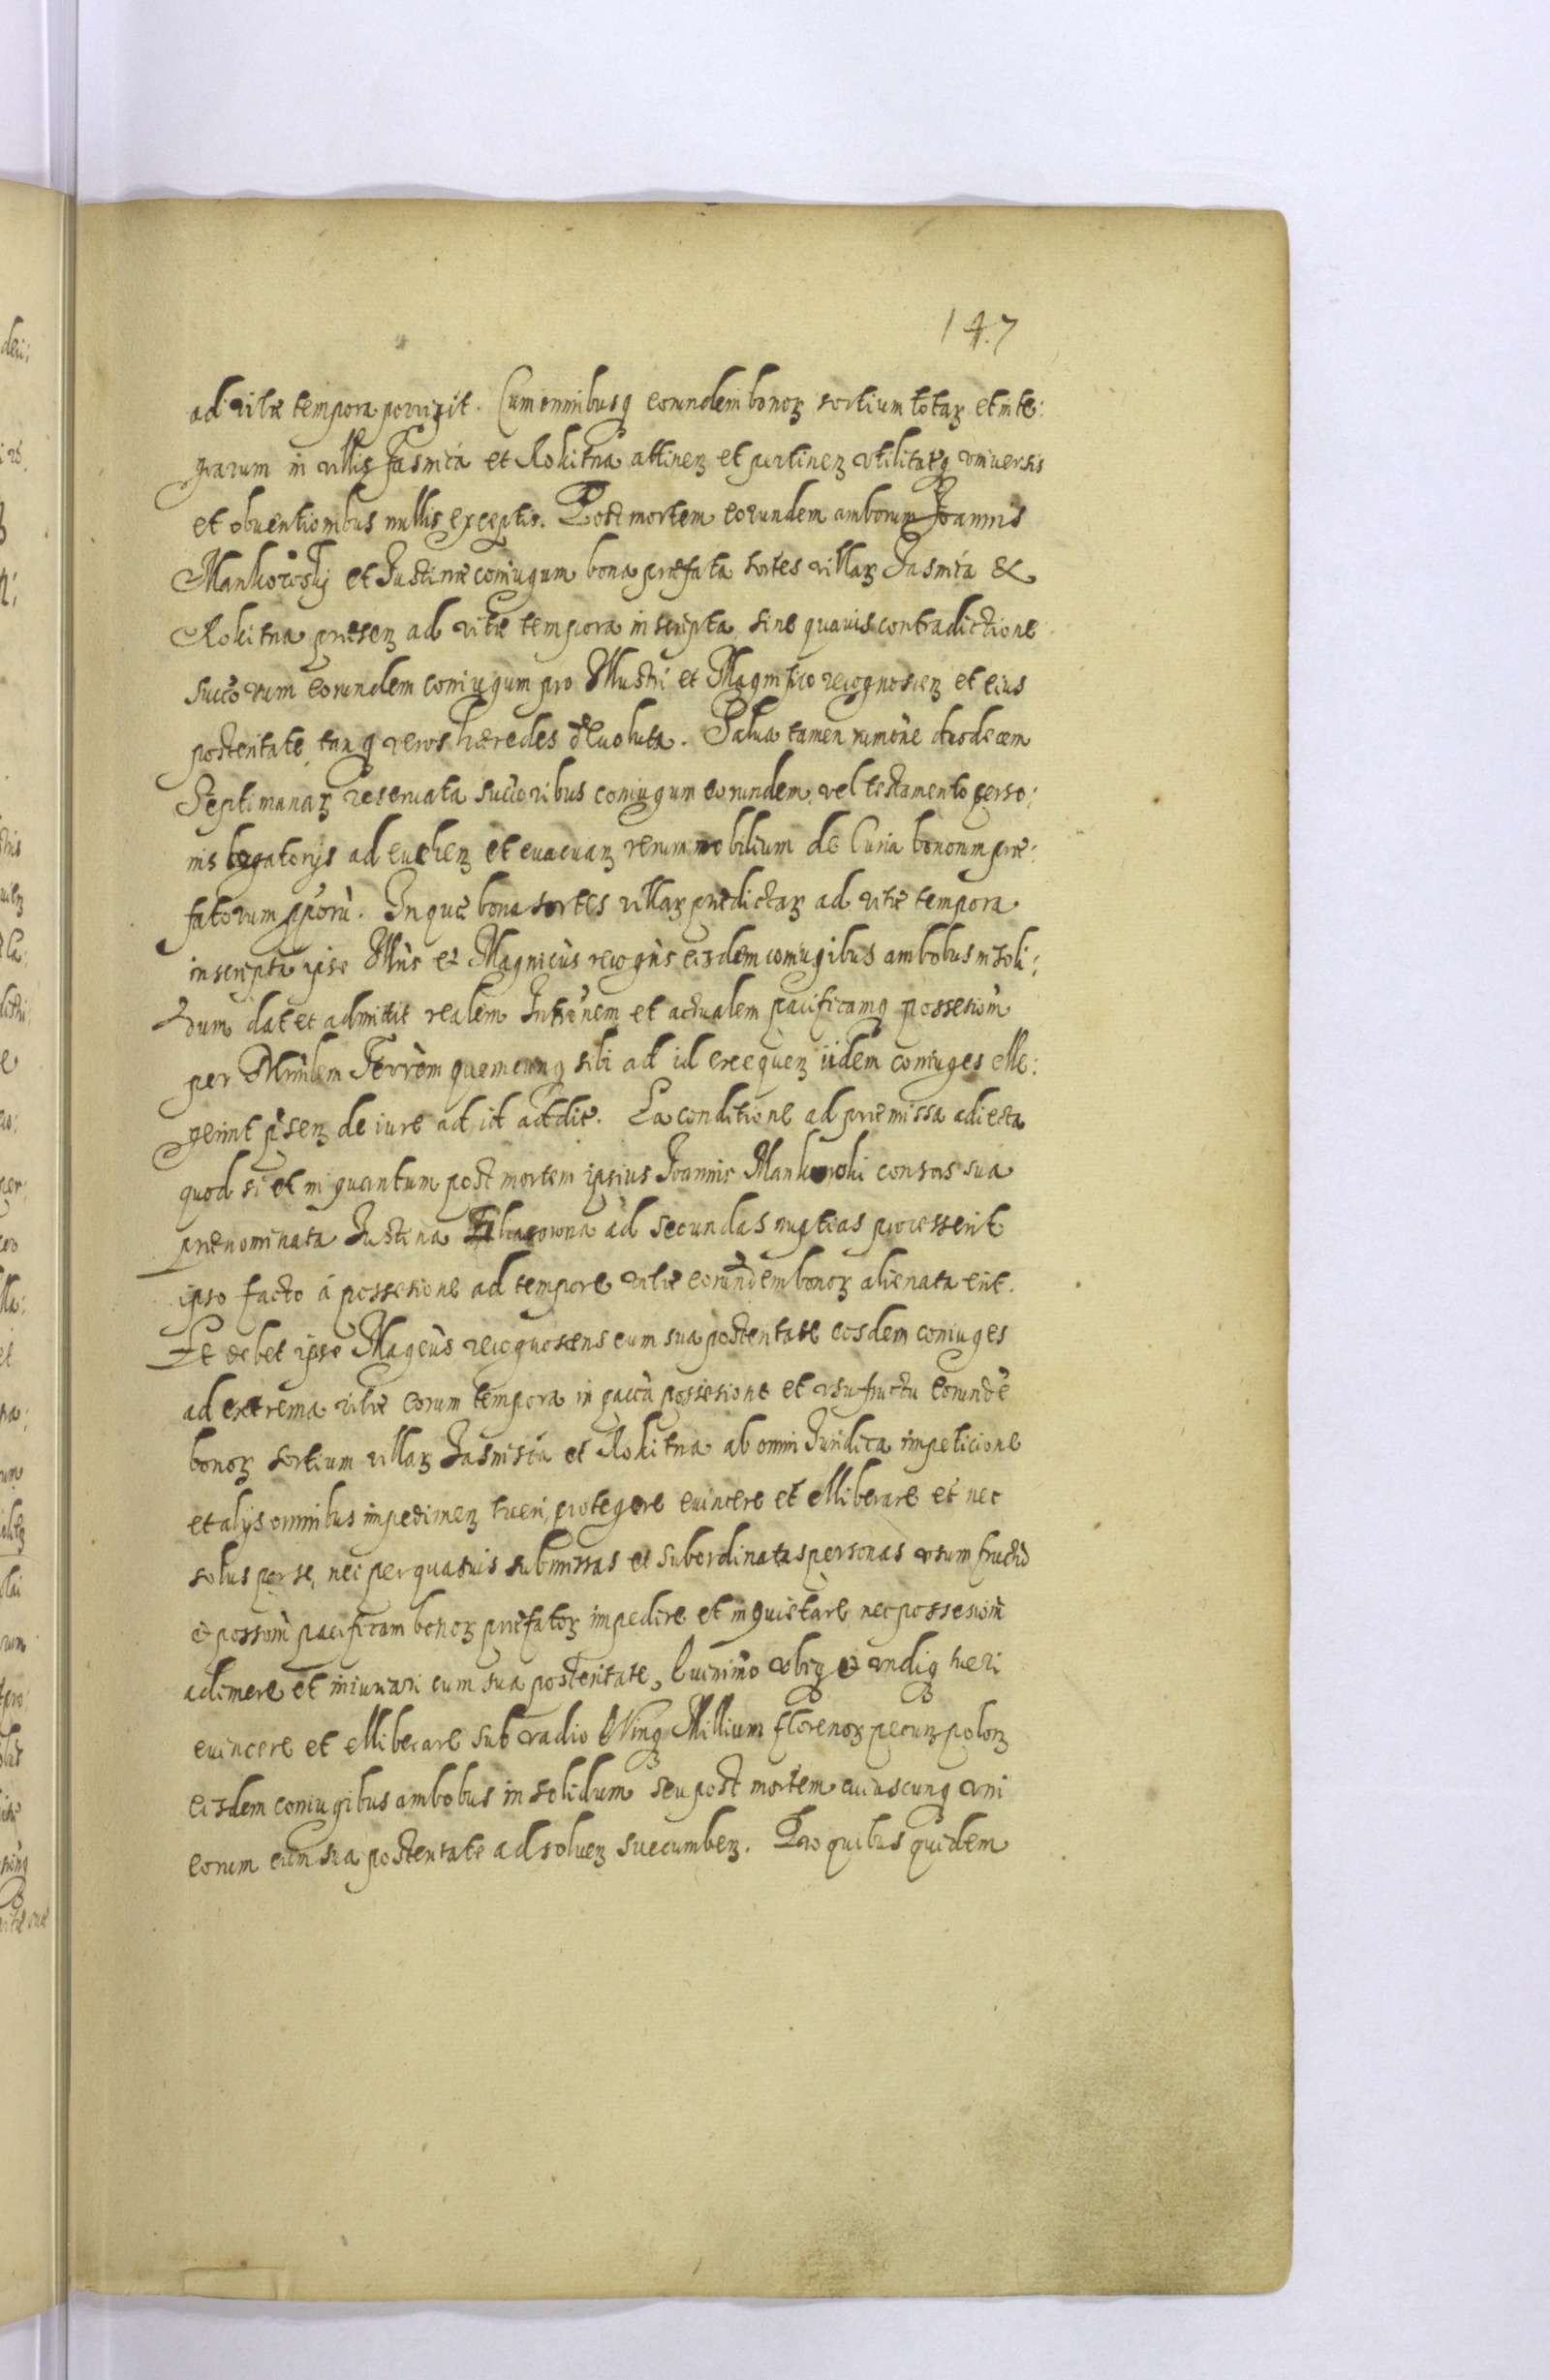 147
ad vitæ tempora porrigit. Cum omnibusq eorundem bonoꝝ sortium totaꝝ et inte:
grarum in villis Jasnica et Rokitna attineꝫ et pertineꝫ vtilitatq vniuersis
et obuentionibus nullis exceptis. Post mortem eorundem amborum Joannis
Mankowsky et Justinæ coniugum bona præfata sortes villaꝝ Jasnica &
Rokitna præseꝫ ad vitæ tempora inscripta sine quauis contradictione
succorum eorundem coniugum pro Illustri et Magnifico recognosceꝫ et eius
posteritate tanq veros hæredes deuoluta. Salua tamen rumõne duodecem
Septimanaꝝ reseruata succoribus coniugum eorundem vel testamento perso:
nis legatorijs ad eueheꝫ et euacuaꝫ rerum mobilium de Curia bonorum præ:
fatorum ipsorù. In quæ bona sortes villaꝝ prædictaꝝ ad vitæ tempora
inscripta ipse Illùs et Magnicùs recogñs eisdem coniugibus ambobus in soli:
dum dat et admittit realem Intrõnem et actualem pacificamq possesiom
per Minlem Terrem quemcunq sibi ad id exequeꝫ iidem coniuges elle:
gerint pseꝫ de iure ad id addit. Ea conditione ad præmissa adiecta
quod si et in quantum post mortem ipsius Joannis Mankowski consors sua
prænominata Justina ad secundas nuptias processerit
ipso facto á possesione ad tempore vitæ eorundem bonoꝝ alienata erit.
Et debet ipse Magcùs recognoscens cum sua posteritate eosdem coniuges
ad extrema vitæ eorum tempora in paccà possesione et vsufructu eorundẽ
bonoꝝ sortium villaꝝ Jasnisca et Rokitna ab omni Juridica impeticione
et alys omnibus impedimeꝫ tueri, protegere euincere et elliberare et nec
solus per se, nec per quasuis submissas et subordinatas personas vsum fructũ
et possom pacificam bonoꝝ præfatoꝝ impedire et inquietare nec possesiom
adimere et iniuriari cum sua posteritate, Quinimo vbiq et vndiq tueri
euincere et elliberare sub vadio Millium florenoꝝ pecunꝫ poloꝝ
eisdem coniugibus ambobus in solidum seu post mortem cuiuscunq vni
eorum cum sua posteritate ad solueꝫ succumbeꝫ. Pro quibus quidem